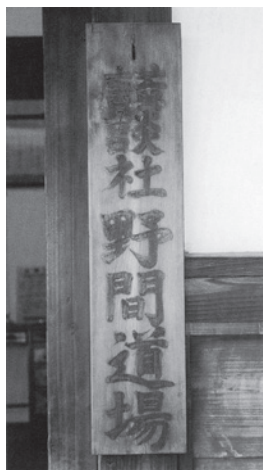 講談社野間道場